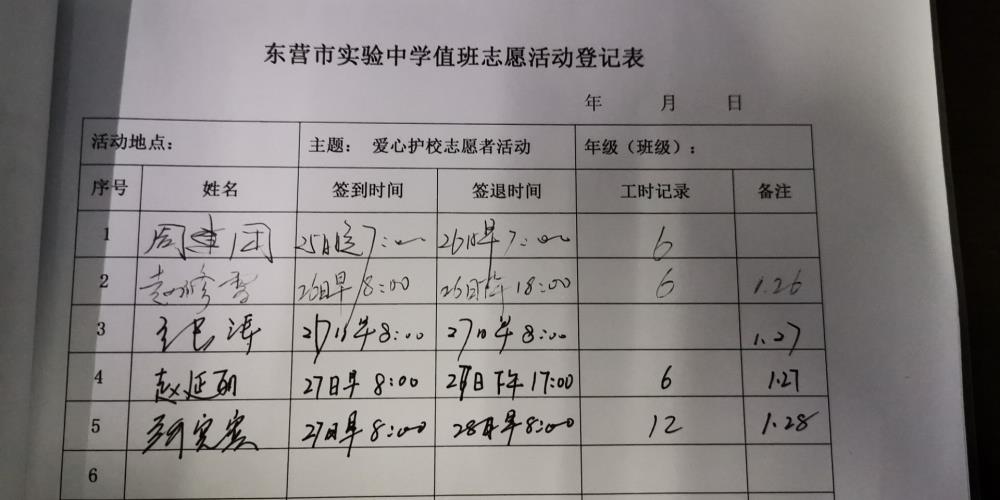 东营市实验中学值班志愿活动登记表
年 月 日
活动地点： 主题： 爱心护校志愿者活动 年级（班级）：
序号 姓名 签到时间 签退时间 工时记录 备注
1 周建国 25日 7:00 26日早7:00 6
2 26日早8:00 26日 18:00 6 1.26
3 27日早8:00 27日 8:00 1.27
4 赵延丽 27日早8:00 27日下午17:00 6 1.27
5 27日早8:00 28日早8:00 12 1.28
6